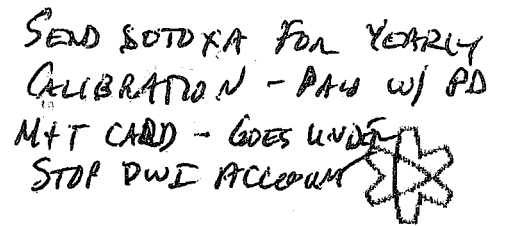 SEND SOTOXA FOR YEARLY
CALIBRATION - PAID W/ PD
M+T CARD - GOES UNDER
STOP DWI ACCOUNT